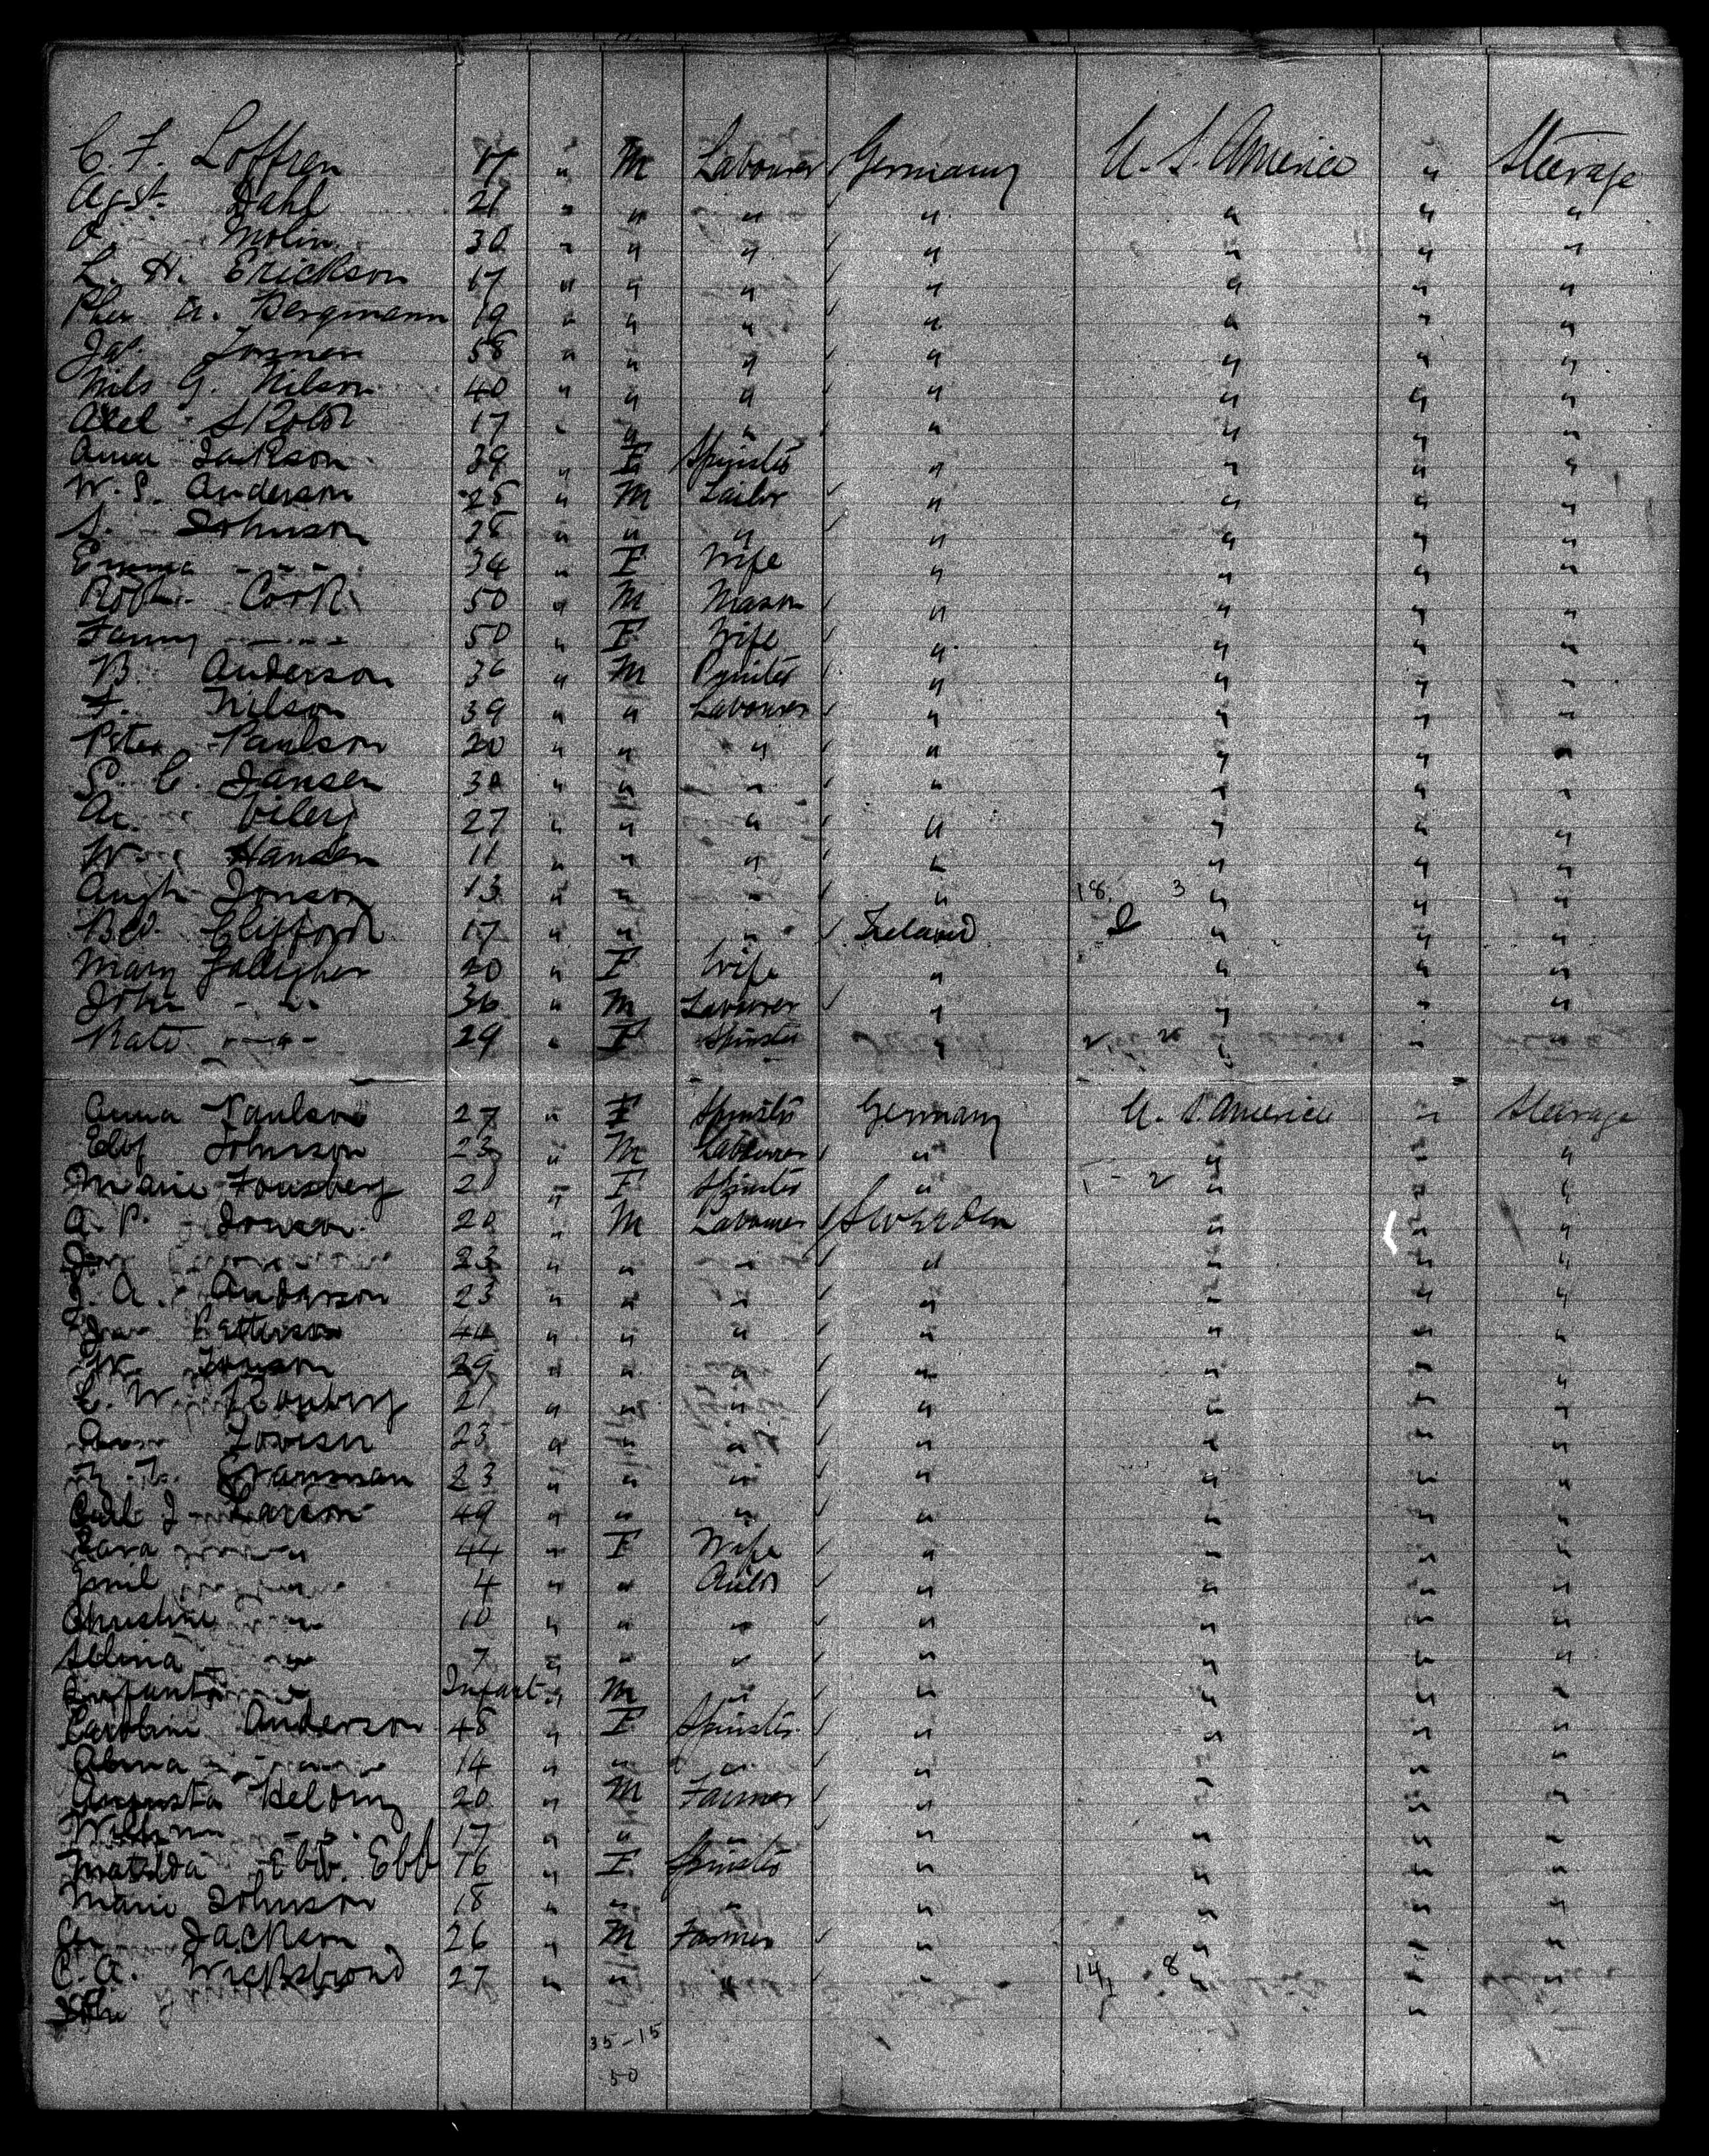 C. F. Loffren 17 " M Labourer Germany U. S. America " Steerage
Agst. Dahl 21 " " " " " " "
Molin 30 " " " " " " "
L. H. Erickson 17 " " " " " " "
A. Bergmann 19 " " " " " " "
58 " " " " " " "
Nils G. Nilson 40 " " " " " " "
Axel Skold 17 " " " " " " "
Anna Jackson 39 " F Spinster " " " "
W. S. Anderson 25 " M Tailor " " " "
S. Johnson 28 " " " " " " "
Emma " 34 " F Wife " " " "
Robt. Cook 50 " M Mason " " " "
Fanny " 50 " F Wife " " " "
B. Anderson 36 " M " " " "
F. Nilson 39 " " Labourer " " " "
Peter Paulson 20 " " " " " " "
S. C. Jansen 30 " " " " " " "
27 " " " " " " "
W Hansen 11 " " " " " " "
Augt. Jonson 13 " " " " 18 3 " " "
Clifford 17 " " " Ireland " " "
Mary Gallagher 20 " F Wife " " " "
John " 36 " M Labourer " " " "
Kate " 29 " F Spinster " " " "
Anna Paulson 27 " F Spinster Germany U. S. America " Steerage
Elof Johnson 23 " M Labourer " " " "
Marie 21 " F Spinster " " " "
A. P. Jonson 20 " M Labourer Sweden " " "
" 23 " " " " " " "
J. A. Anderson 23 " " " " " " "
Petterson 44 " " " " " " "
Jonson 29 " " " " " " "
W. 21 " " " " " " "
23 " " " " " " "
23 " " " " " " "
Carl J Larson 49 " " " " " " "
" 44 " F Wife " " " "
Emil " 4 " " Child " " " "
Christine " 10 " " " " " " "
" 7 " " " " " " "
Infant " Infant " M " " " " "
Caroline Anderson 48 " F Spinster " " " "
" 14 " " " " " " "
Augusta 20 " M Farmer " " " "
" 17 " " " " " " "
Matilda Ebb Ebb 16 " F Spinster " " " "
Marie Johnson 18 " " " " " " "
Jackson 26 " M Farmer " " " "
C. A. Wickstrond 27 " " " " 14 8 " " "
John "
35-15
50